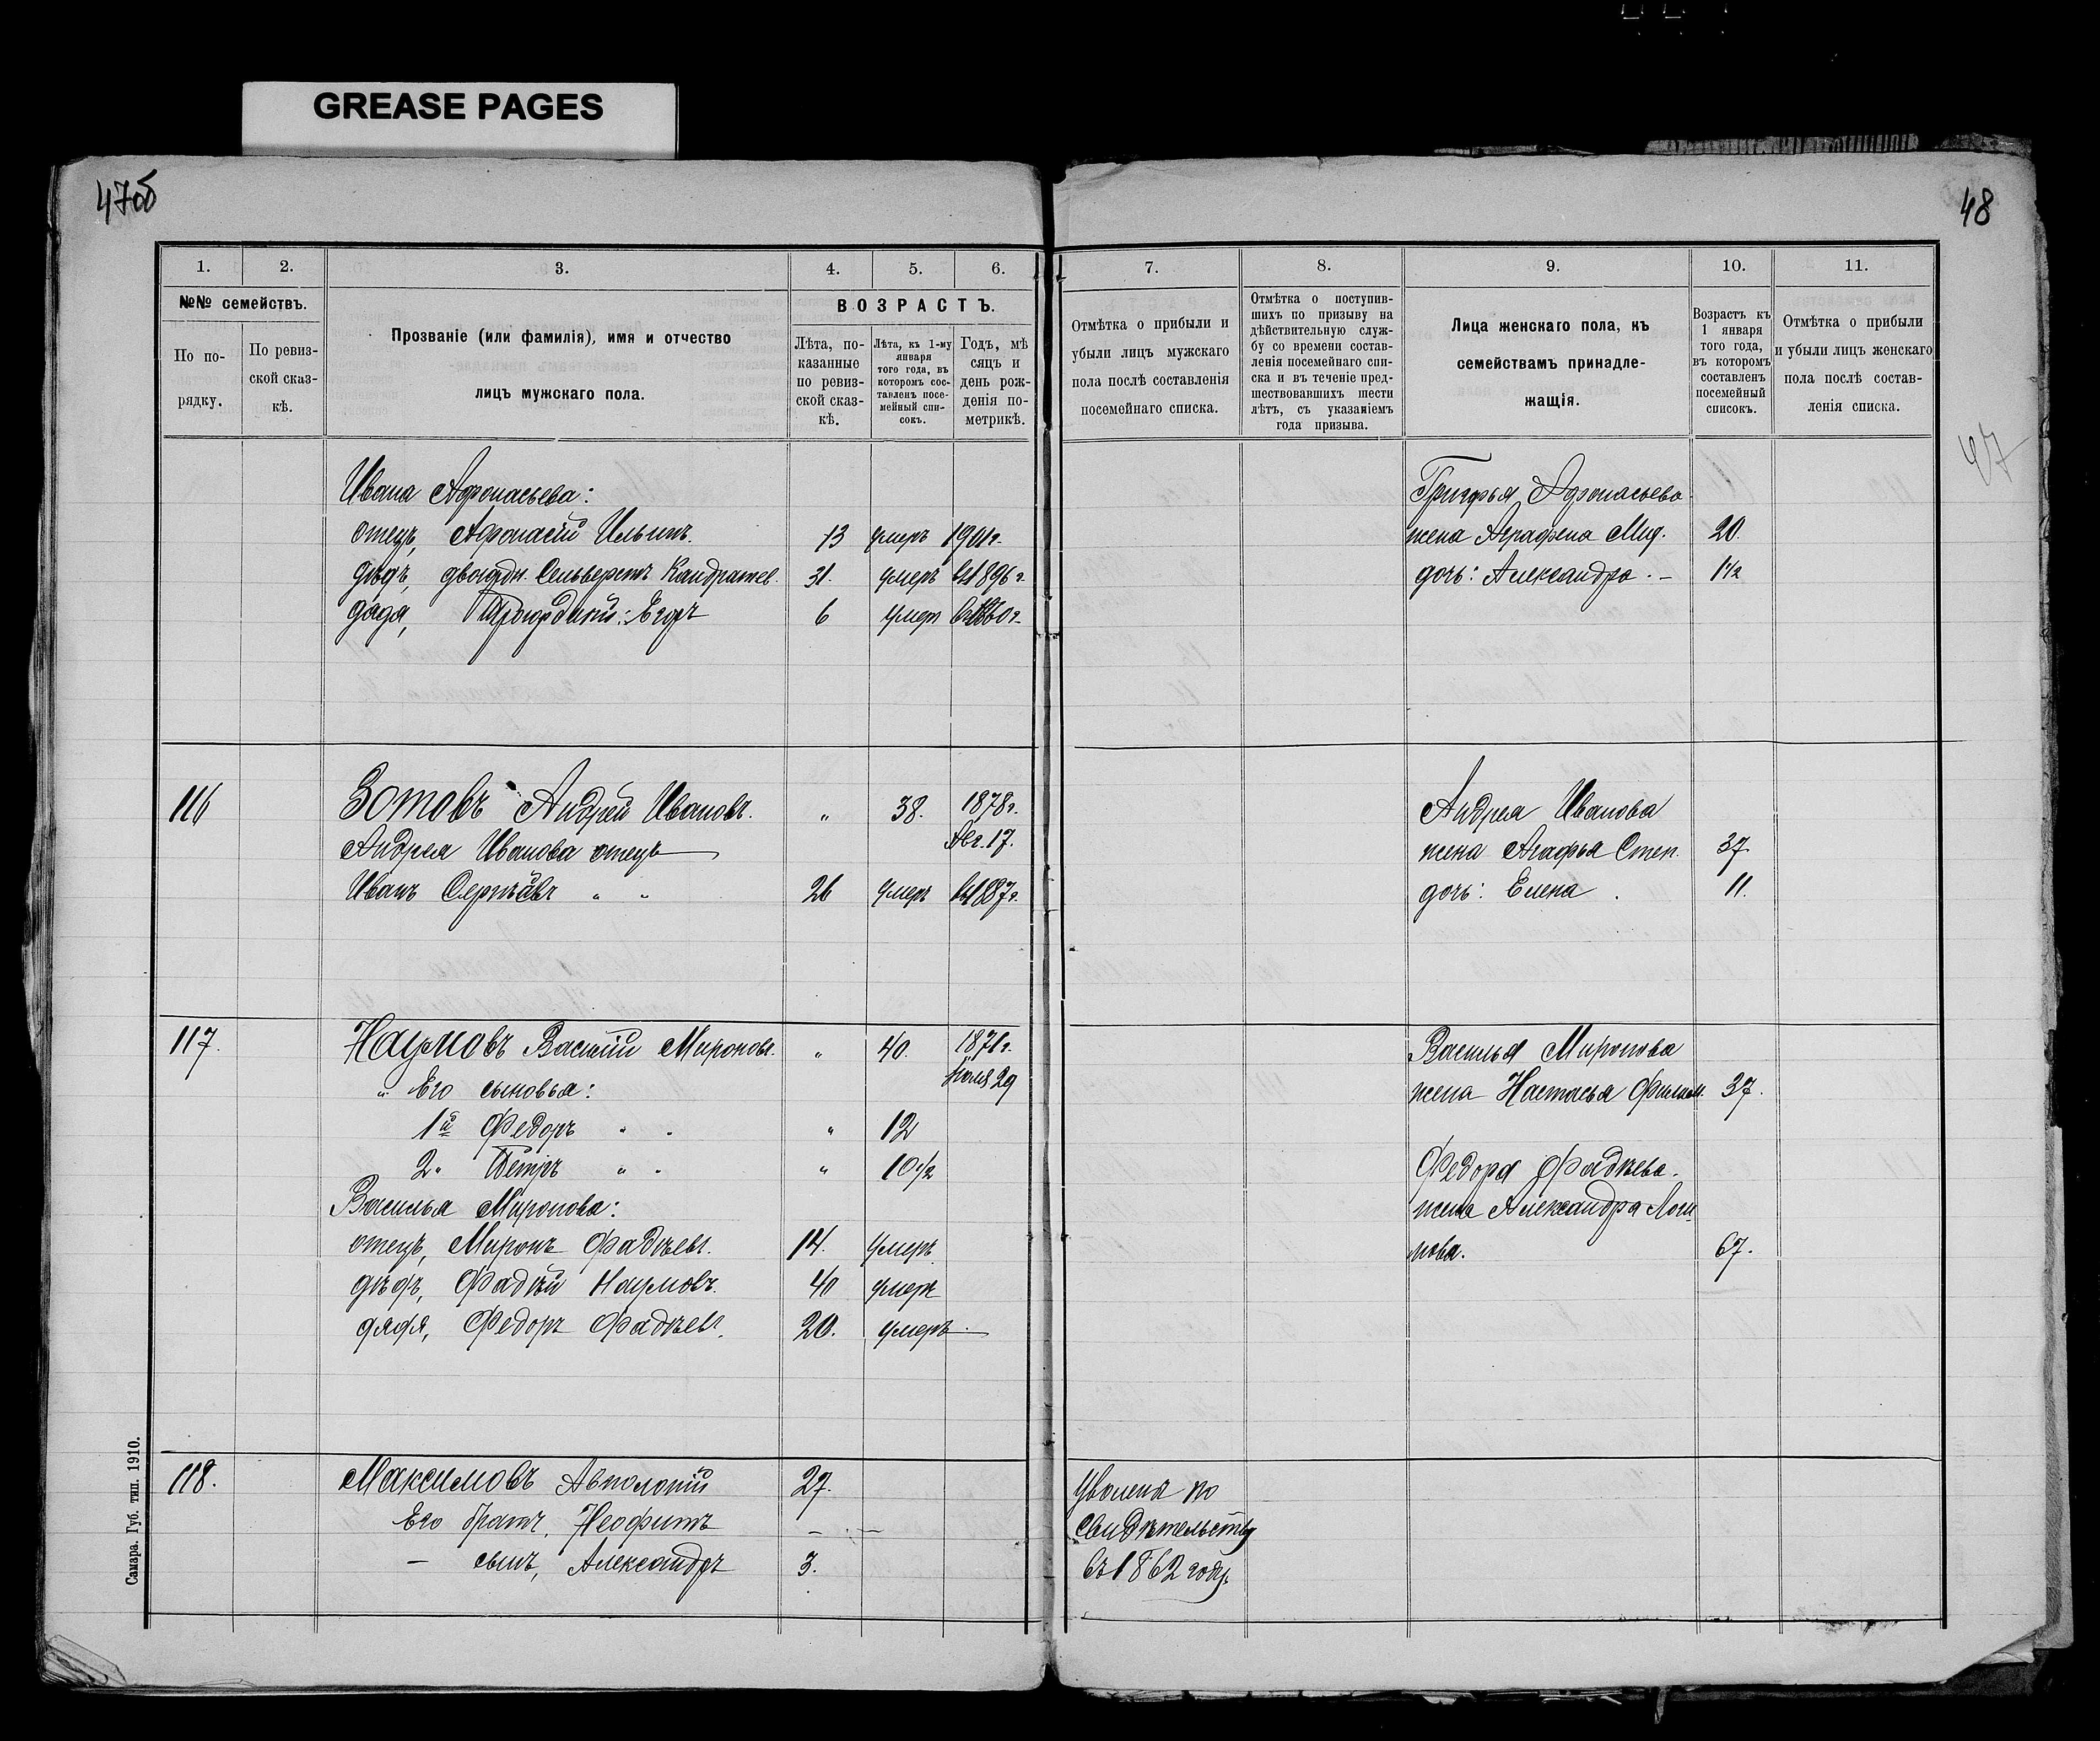 GREASE PAGES
47об
48
1.
2.
3.
4.
5.
6.
№№ семействъ.
По по-
рядку.
По ревиз-
ской сказ-
кѣ.
Прозваніе (или фамилія), имя и отчество
лицъ мужскаго пола.
ВОЗРАСТЪ.
Лѣта, по-
казанные
по ревиз-
ской сказ-
кѣ.
Лѣта, къ 1-му
января
того года, въ
которомъ сос-
тавленъ посе-
мейный спи-
сокъ.
Годъ, мѣ
сяцъ и
день рож-
денія по-
метрикѣ.
7.
8.
9.
10.
11.
Отмѣтка о прибыли и
убыли лицъ мужскаго
пола послѣ составленія
посемейнаго списка.
Отмѣтка о поступив-
шихъ по призыву на
дѣйствительную служ-
бу со времени состав-
ленія посемейнаго спи-
ска и въ теченіе пред-
шествовавшихъ шести
лѣтъ, съ указаніемъ
года призыва.
Лица женскаго пола, къ
семействамъ принадле-
жащія.
Возрастъ къ
1 января
того года,
въ которомъ
составленъ
посемейный
списокъ.
Отмѣтка о прибыли
и убыли лицъ женскаго
пола послѣ состав-
ленія списка.
47
Ивана Афонасьева:
отецъ, Афонасій Ильинъ. 13 умеръ 1901г.
дѣдъ, двоюрдн. Сельверстъ Кандратьев. 31. умеръ въ 1896г.
дядя, Егоръ 6 умеръ 1860г.
Афонасьева
жена Аграфена Мид. 20.
дочь: Александра. – 1 1/2
116 Зотовъ Андрей Ивановъ. „ 38. 1878г.
Авг. 17.
Андрея Иванова отецъ
Иванъ Сергѣевъ „ „ 26 умеръ въ 1887г.
Андрея Иванова
жена Агафья Степ. 37
дочь: Елена. 11.
117. Наумовъ Василій Мироновъ. „ 40. 1876г.
29
„ Его сыновья:
1й Федоръ „ „ „ 12
2„ Петръ „ „ „ 10 1/2
Василья Миронова:
отецъ, Миронъ Фадѣевъ. 14. умеръ
дѣдъ, Фадѣй Наумовъ. 40 умеръ
дядя, Федоръ Фадѣевъ. 20. умеръ
Василья Миронова
жена Настасья Филип. 37.
Федора Фадѣева.
жена Александра
нова. 67.
118. Максимовъ 27.
Его братъ, Неофитъ – –
– сынъ, Александръ 3.
Уволены по
свидѣтельству
въ 1862 году.
Самара. Губ. тип. 1910.